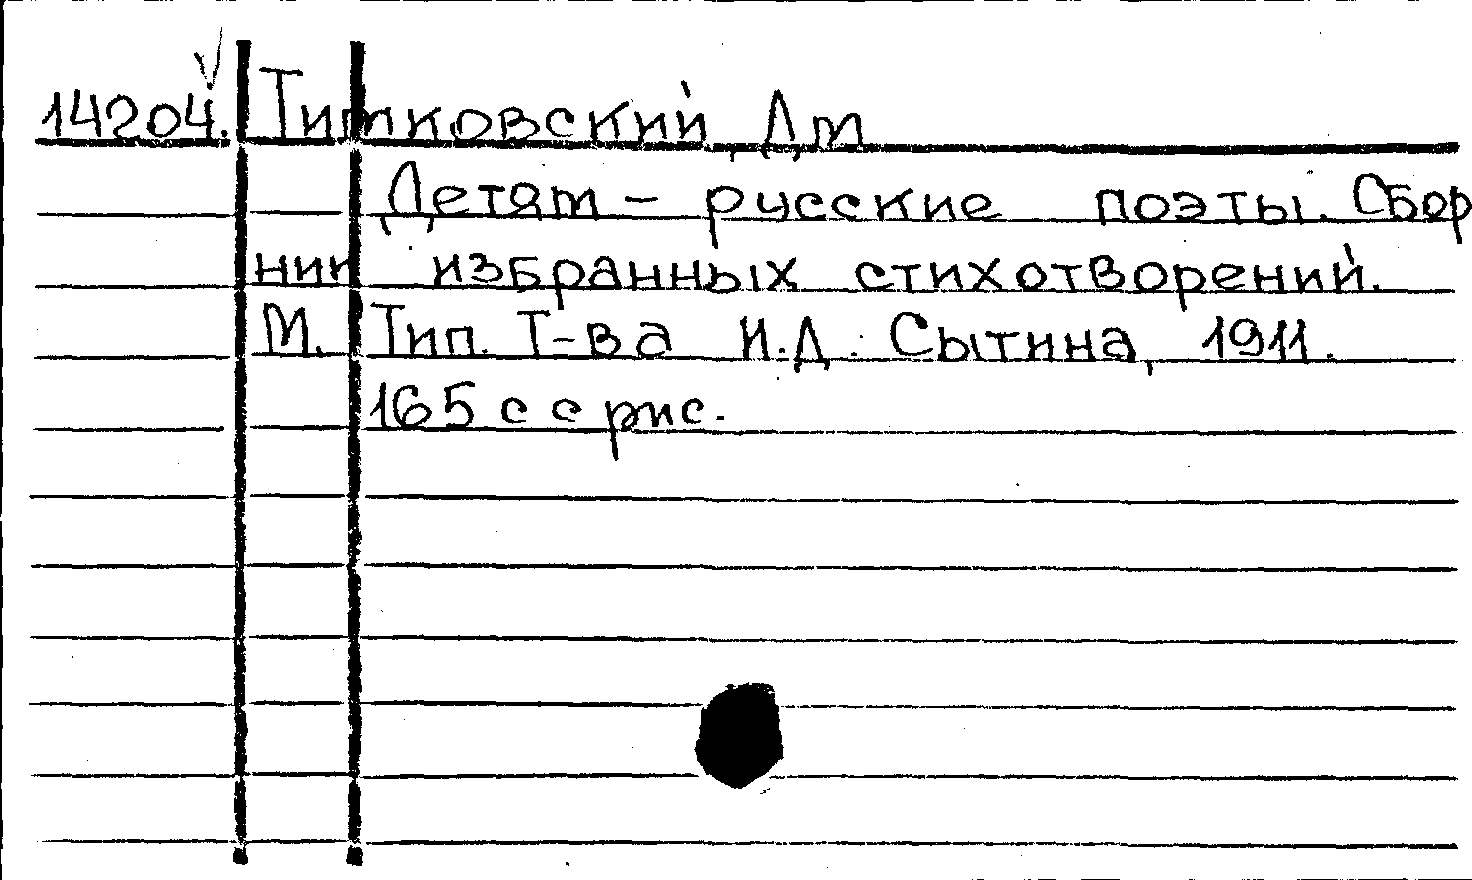 14204. Тимковский, Дм
Детям – русские поэты. Сбор
ник избранных стихотворений.
М. Тип. Т-ва И.Д. Сытина, 1911.
165 с с рис.